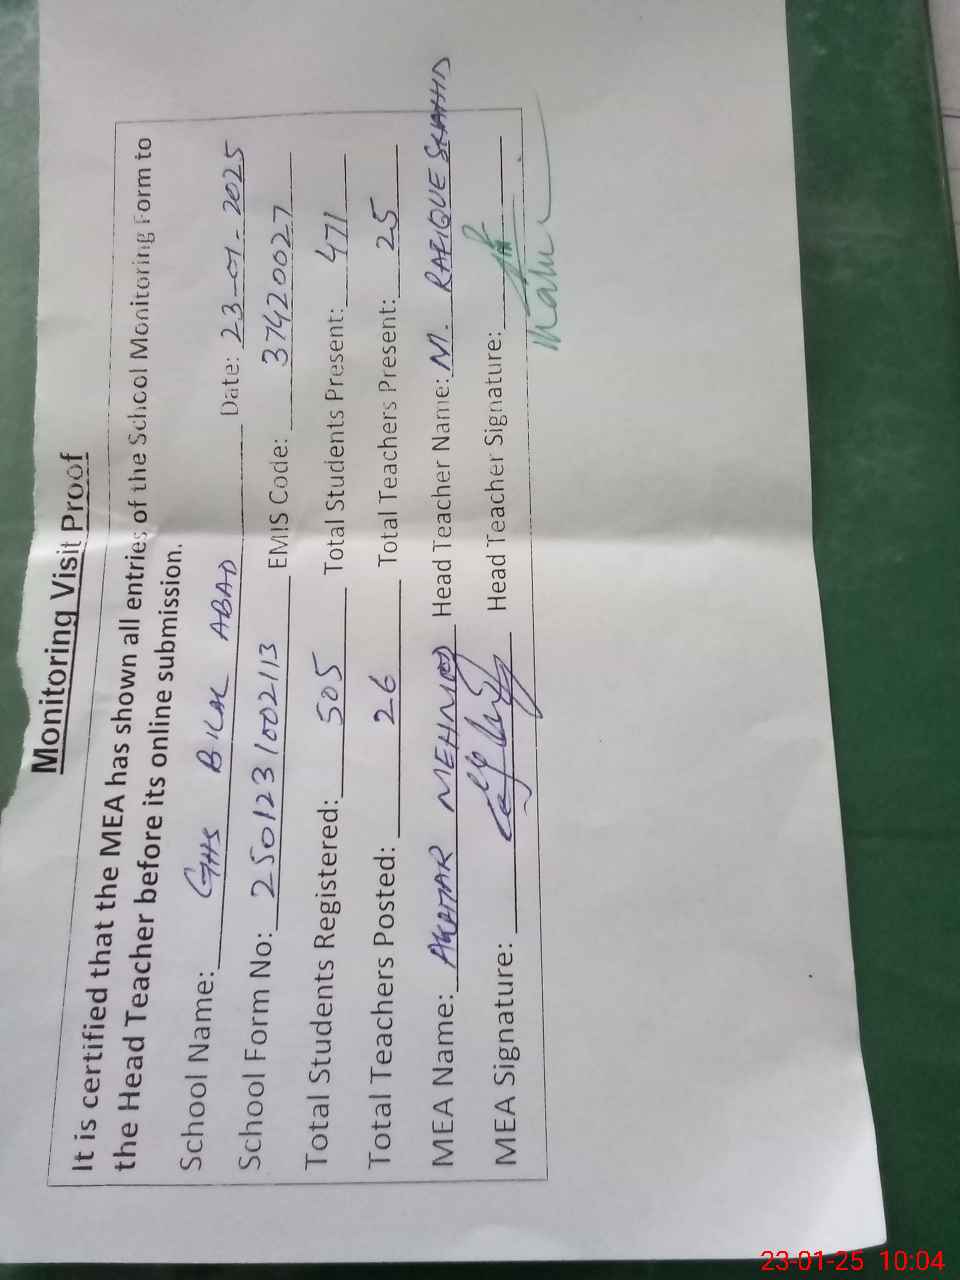 Monitoring Visit Proof
It is certified that the MEA has shown all entries of the School Monitoring Form to
the Head Teacher before its online submission.
School Name: GHS BILAL ABAD Date: 23-01-2025
School Form No: 2501231002113 EMIS Code: 37420027
Total Students Registered: 505 Total Students Present: 471
Total Teachers Posted: 26 Total Teachers Present: 25
MEA Name: AKHTAR MEHMOOD Head Teacher Name: M. RAFIQUE
MEA Signature: Head Teacher Signature:
23-01-25 10:04